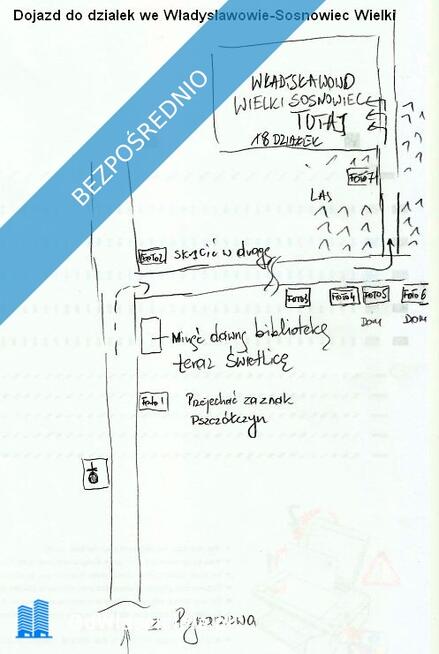 Dojazd do działek we Władysławowie-Sosnowiec Wielki
BEZPOŚREDNIO
WŁADISŁAWOWO
WIELKI SOSNOWIEC
TUTAJ
18 DZIAŁEK
FOTO7
LAS
FOTO2 SKRĘCIĆ W drogę
FOTO3 FOTO4 FOTO5 FOTO6
DOM DOM
Minąć dawną bibliotekę
teraz Świetlicę
Foto1 Przejechać za znak
Pszczółczyn
z Rynarzewa